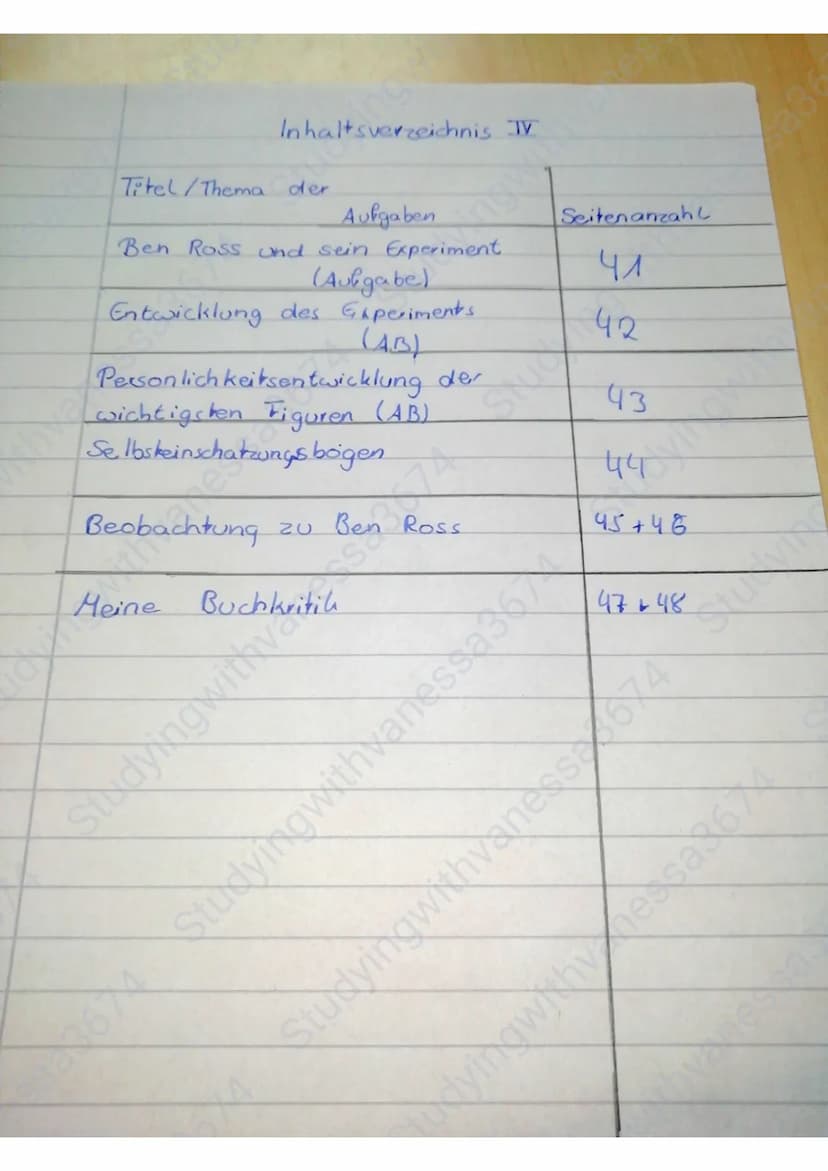 Inhaltsverzeichnis IV
Titel/Thema der
Aufgaben Seitenanzahl
Ben Ross und sein Experiment
(Aufgabe) 41
Entwicklung des Experiments
(AB) 42
Persönlichkeitsentwicklung der
wichtigsten Figuren (AB) 43
Selbsteinschätzungsbögen 44
Beobachtung zu Ben Ross 45 + 46
Meine Buchkritik 47 + 48
Studyingwithvanessa3674